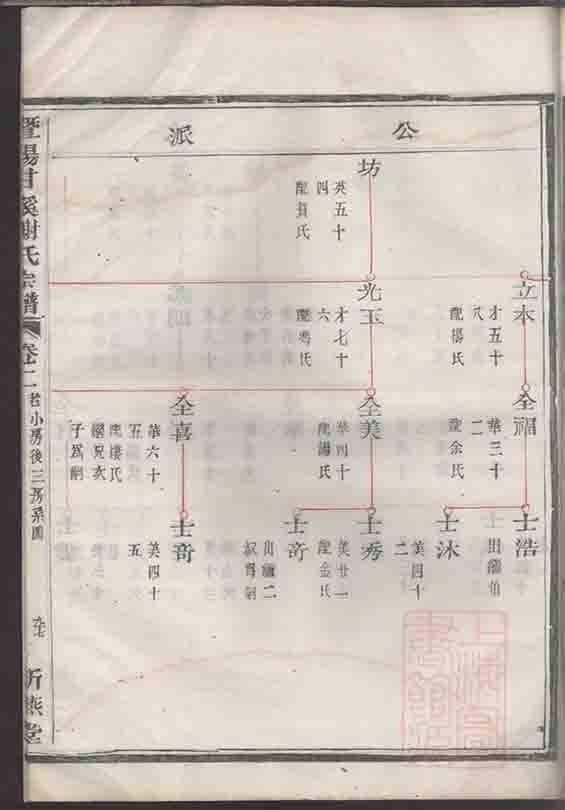 公派
坊
英五十
四
光玉
才七十
六
立本
才五十
八
配楊氏
全福
華三十
二
配余氏
全美
華四十
配湯氏
全喜
華六十
五
配樓氏
繼兄次
子爲嗣
士浩
出繼伯
士沐
英四十
二
士秀
英廿一
配金氏
士奇
出繼二
叔爲嗣
士奇
英四十
五
暨陽甘溪謝氏宗譜
卷二
小房後三房系圖